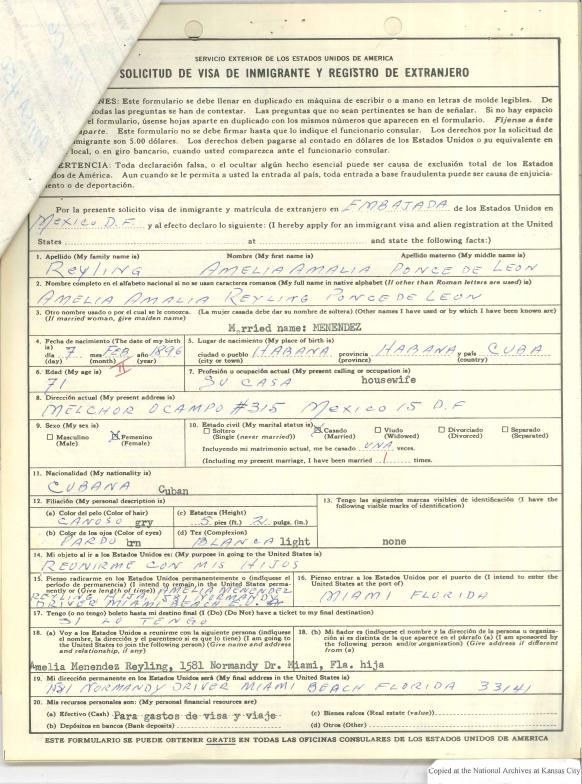 SERVICIO EXTERIOR DE LOS ESTADOS UNIDOS DE AMERICA
SOLICITUD DE VISA DE INMIGRANTE Y REGISTRO DE EXTRANJERO
NES: Este formulario se debe llenar en duplicado en máquina de escribir o a mano en letras de molde legibles. De
todas las preguntas se han de contestar. Las preguntas que no sean pertinentes se han de señalar. Si no hay espacio
el formulario, úsense hojas aparte en duplicado con los mismos números que aparecen en el formulario. Fíjense a éste
aparte. Este formulario no se debe firmar hasta que lo indique el funcionario consular. Los derechos por la solicitud
migrante son 5.00 dólares. Los derechos deben pagarse al contado en dólares de los Estados Unidos o su equivalente en
local, o en giro bancario, cuando usted comparezca ante el funcionario consular.
ERTENCIA: Toda declaración falsa, o el ocultar algún hecho esencial puede ser causa de exclusión total de los Estados
dos de América. Aun cuando se le permita a usted la entrada al país, toda entrada a base fraudulenta puede ser causa de enjuicia-
iento o de deportación.
Por la presente solicito visa de inmigrante y matrícula de extranjero en EMBAJADA de los Estados Unidos en
Mexico D.F. y al efecto declaro lo siguiente: (I hereby apply for an immigrant visa and alien registration at the United
States at and state the following facts:)
1. Apellido (My family name is) Nombre (My first name is) Apellido materno (My middle name is)
Reyling AMELIA AMALIA PONCE DE LEON
2. Nombre completo en el alfabeto nacional si no se usan caracteres romanos (My full name in native alphabet (If other than Roman letters are used) is)
AMELIA AMALIA REYLING PONCE DE LEON
3. Otro nombre usado o por el cual se le conozca. (La mujer casada debe dar su nombre de soltera) (Other names I have used or by which I have been known)
(If married woman, give maiden name)
Married name: MENENDEZ
4. Fecha de nacimiento (The date of my birth is)
día 7 mes FEB año 1896
(day) (month) (year)
II
5. Lugar de nacimiento (My place of birth is)
ciudad o pueblo HABANA provincia HABANA y país CUBA
(city or town) (province) (country)
6. Edad (My age is)
71
7. Profesión u ocupación actual (My present calling or occupation is)
SU CASA housewife
8. Dirección actual (My present address is)
MELCHOR OCAMPO #315 MEXICO 15 D.F
9. Sexo (My sex is)
Masculino (Male) X Femenino (Female)
10. Estado civil (My marital status is)
Soltero (Single (never married)) X Casado (Married) Viudo (Widowed) Divorciado (Divorced) Separado (Separated)
Incluyendo mi matrimonio actual, me he casado UNA veces.
(Including my present marriage, I have been married 1 times.
11. Nacionalidad (My nationality is)
CUBANA Cuban
12. Filiación (My personal description is)
(a) Color del pelo (Color of hair) (c) Estatura (Height)
CANOSO gry 5 pies (ft.) 2 pulgs. (in.)
(b) Color de los ojos (Color of eyes) (d) Tez (Complexion)
PARDO brn BLANCA light
13. Tengo las siguientes marcas visibles de identificación (I have the
following visible marks of identification)
none
14. Mi objeto al ir a los Estados Unidos es: (My purpose in going to the United States is)
REUNIRME CON MIS HIJOS
15. Pienso radicarme en los Estados Unidos permanentemente o (indíquese el
período de permanencia) (I intend to remain in the United States perma-
nently or (Give length of time)) AMELIA MENENDEZ
REYLING HIJA, 1581 NORMANDY
DRIVER MIAMI BEACH E.U.
16. Pienso entrar a los Estados Unidos por el puerto de (I intend to enter the
United States at the port of)
MIAMI FLORIDA
17. Tengo (o no tengo) boleto hasta mi destino final (I Do) (Do Not) have a ticket to my final destination)
SI LO TENGO
18. (a) Voy a los Estados Unidos a reunirme con la siguiente persona (indíquese
el nombre, la dirección y el parentesco si es que lo tiene) (I am going to
the United States to join the following person) (Give name and address
and relationship, if any)
18. (b) Mi fiador es (indíquese el nombre y la dirección de la persona u organiza-
ción si es distinta de la que aparece en el párrafo (a) (I am sponsored by
the following person and/or organization) (Give address if different
from (a)
Amelia Menendez Reyling, 1581 Normandy Dr. Miami, Fla. hija
19. Mi dirección permanente en los Estados Unidos será (My final address in the United States is)
1581 NORMANDY DRIVER MIAMI BEACH FLORIDA 33141
20. Mis recursos personales son: (My personal financial resources are)
(a) Efectivo (Cash) Para gastos de visa y viaje (c) Bienes raíces (Real estate (value))
(b) Depósitos en bancos (Bank deposits) (d) Otros (Other)
ESTE FORMULARIO SE PUEDE OBTENER GRATIS EN TODAS LAS OFICINAS CONSULARES DE LOS ESTADOS UNIDOS DE AMERICA
Copied at the National Archives at Kansas City